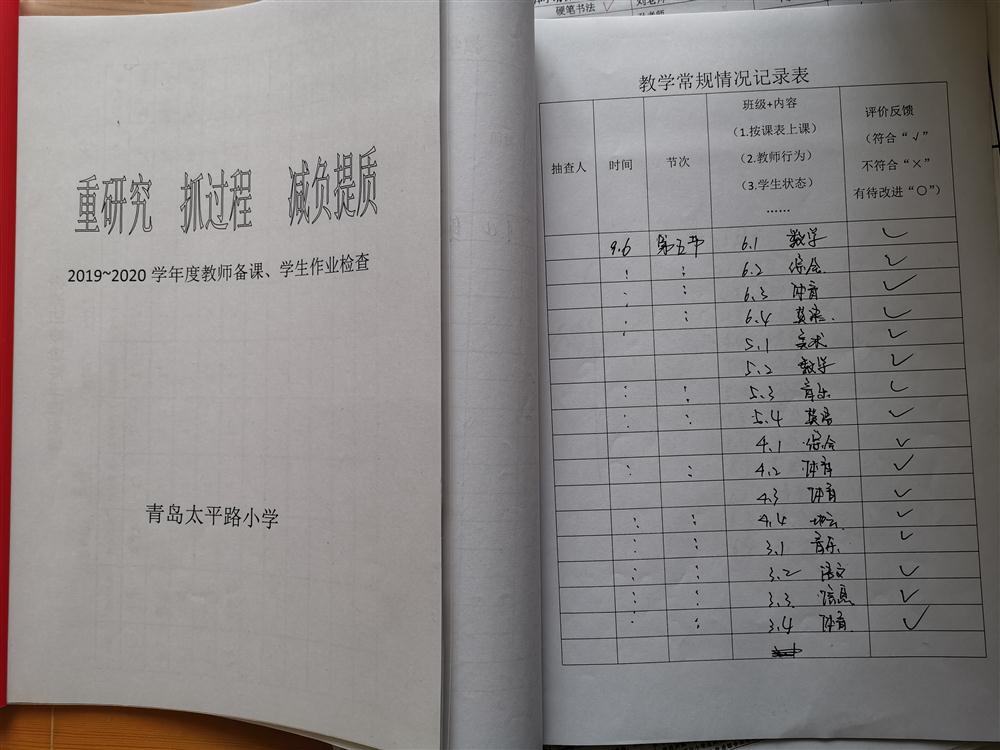 重研究 抓过程 减负提质
2019~2020 学年度教师备课、学生作业检查
青岛太平路小学
硬笔书法 ✓
教学常规情况记录表
抽查人 时间 节次 班级+内容 评价反馈
（1.按课表上课） （符合“√”
（2.教师行为） 不符合“×”
（3.学生状态） 有待改进“○”）
……
9.6 第五节 6.1 数学 ✓
: : 6.2 综合 ✓
: : 6.3 体育 ✓
: : 6.4 英语 ✓
5.1 美术 ✓
5.2 数学 ✓
: : 5.3 音乐 ✓
: : 5.4 英语 ✓
4.1 综合 ✓
: : 4.2 体育 ✓
4.3 体育 ✓
: : 4.4 ✓
: : 3.1 音乐 ✓
: : 3.2 语文 ✓
: : 3.3 信息 ✓
: : 3.4 体育 ✓